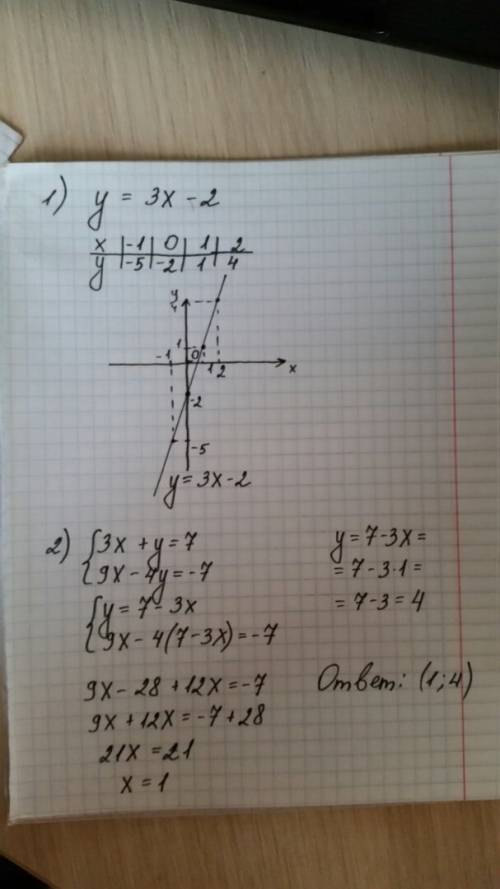 1) y = 3x - 2
x | -1 | 0 | 1 | 2
y | -5 | -2 | 1 | 4
y
4
1
-1 0 1 2 x
-2
-5
y = 3x - 2
2) { 3x + y = 7
9x - 4y = -7
{ y = 7 - 3x
9x - 4(7 - 3x) = -7
9x - 28 + 12x = -7
9x + 12x = -7 + 28
21x = 21
x = 1
y = 7 - 3x =
= 7 - 3·1 =
= 7 - 3 = 4
Ответ: (1; 4)